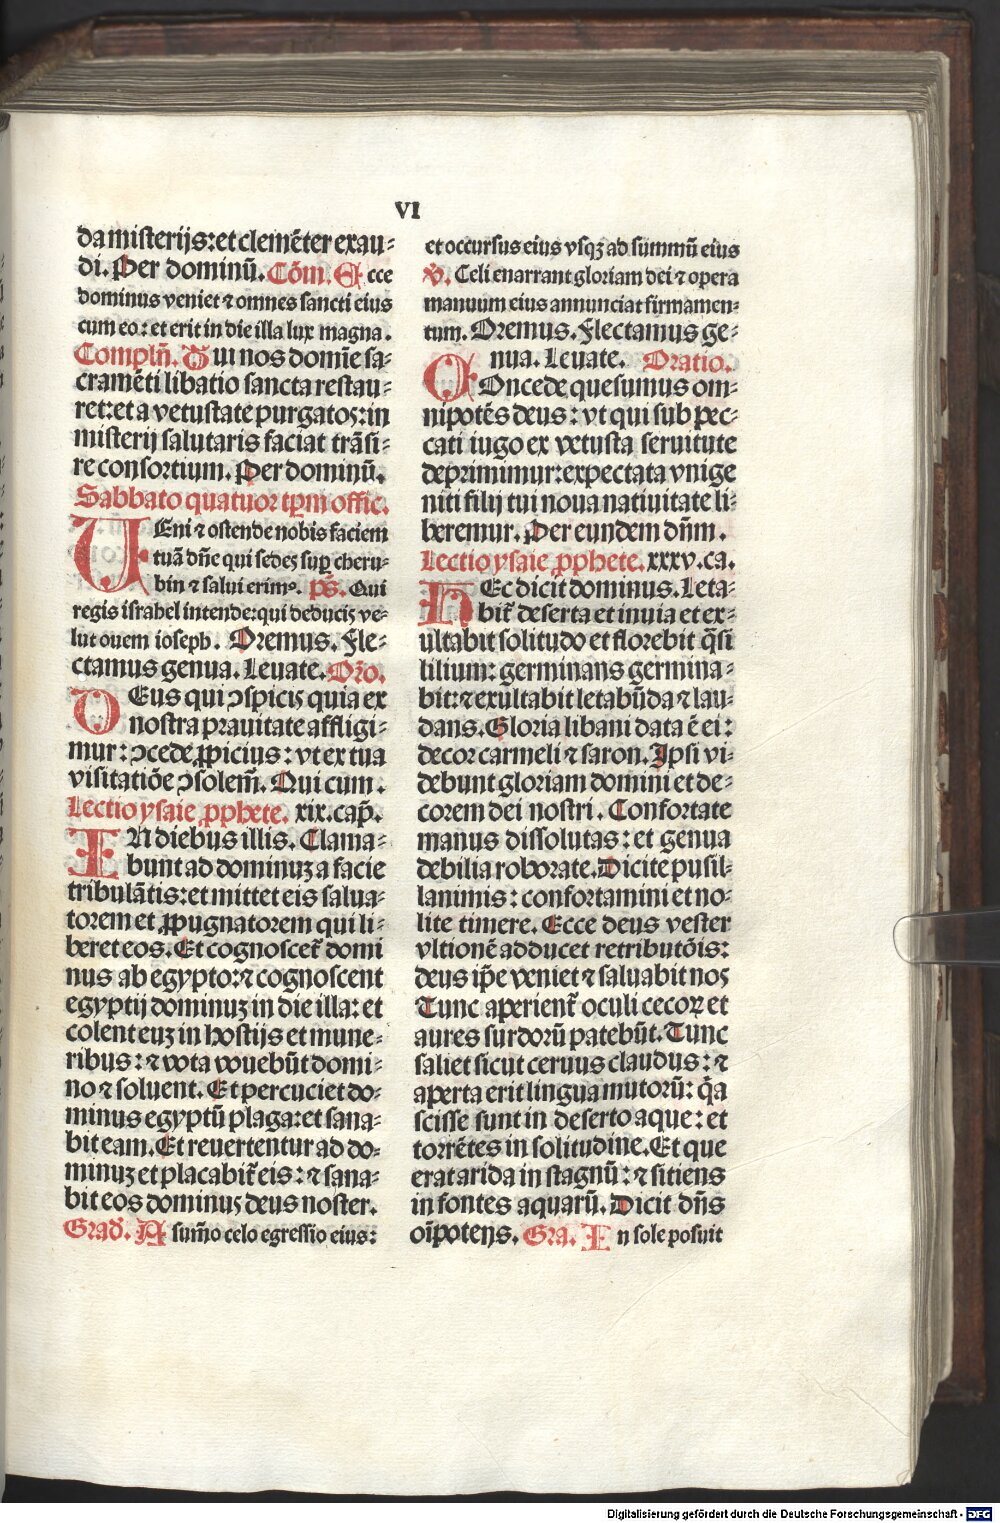 VI
da misterijs: et clemẽter exau-
di. Per dominũ. Cõm. Ecce
dominus veniet ⁊ omnes sancti eius
cum eo: et erit in die illa lux magna.
Complñ. Tui nos domĩe sa-
cramẽti libatio sancta restau-
ret: et a vetustate purgatoꝫ: in
misterij salutaris faciat trãsi-
re consortium. Per dominũ.
Sabbato quatuor tꝑm offic.
VEni ⁊ ostende nobis faciem
tuã dñe qui sedes suꝑ cheru-
bin ⁊ salui erimꝰ. p̃s. Qui
regis israhel intende: qui deducis ve-
lut ouem ioseph. Oremus. Fle-
ctamus genua. Leuate. Oro.
DEus qui ↄspicis quia ex
nostra prauitate affligi-
mur: ↄcede ꝓpicius: vt ex tua
visitatiõe ↄsolem̃. Qui cum.
Lectio ysaie ꝓphete. xix. cap̃.
IN diebus illis. Clama-
bunt ad dominuz a facie
tribulãtis: et mittet eis salua-
torem et ꝓpugnatorem qui li-
beret eos. Et cognoscet̃ domi
nus ab egypto: ⁊ cognoscent
egyptij dominuz in die illa: et
colent euz in hostijs et mune-
ribus: ⁊ vota vouebũt domi-
no ⁊ soluent. Et percuciet do-
minus egyptũ plaga: et sana-
bit eam. Et reuertentur ad do-
minuz et placabit̃ eis: ⁊ sana-
bit eos dominus deus noster.
Grad. A sum̃o celo egressio eius:
et occursus eius vsqꝫ ad summũ eius
℣. Celi enarrant gloriam dei ⁊ opera
manuum eius annunciat firmamen-
tum. Oremus. Flectamus ge-
nua. Leuate. Oratio.
COncede quesumus om-
nipotẽs deus: vt qui sub pec-
cati iugo ex vetusta seruitute
deprimimur: expectata vnige
niti filij tui noua natiuitate li-
beremur. Per eundem dñm.
Lectio ysaie ꝓphete. xxxv. ca.
HEc dicit dominus. Leta-
bit̃ deserta et inuia et ex-
ultabit solitudo et florebit q̃si
lilium: germinans germina-
bit: ⁊ exultabit letabũda ⁊ lau-
dans. Gloria libani data ẽ ei:
decor carmeli ⁊ saron. Ipsi vi-
debunt gloriam domini et de-
corem dei nostri. Confortate
manus dissolutas: et genua
debilia roborate. Dicite pusil-
lanimis: confortamini et no-
lite timere. Ecce deus vester
vltionẽ adducet retributõis:
deus ip̃e veniet ⁊ saluabit nos
Tunc aperient̃ oculi cecoꝝ et
aures surdorũ patebũt. Tunc
saliet sicut ceruus claudus: ⁊
aperta erit lingua mutorũ: q̃a
scisse sunt in deserto aque: et
torrẽtes in solitudine. Et que
erat arida in stagnũ: ⁊ sitiens
in fontes aquarũ. Dicit dñs
oĩpotens. Gra. In sole posuit
Digitalisierung gefördert durch die Deutsche Forschungsgemeinschaft - DFG